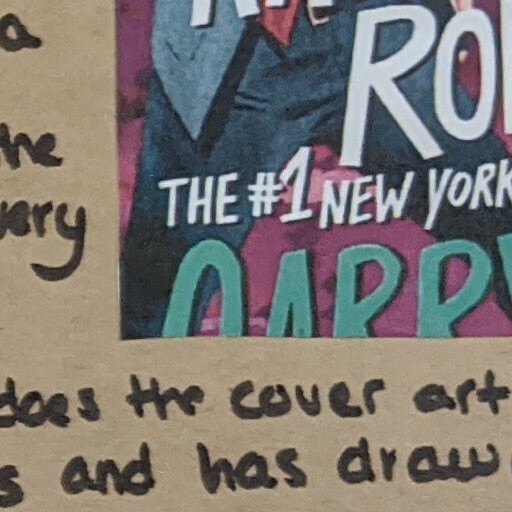 a
the
very
RO
THE #1 NEW YORK
CARRY
does the cover art
s and has draw